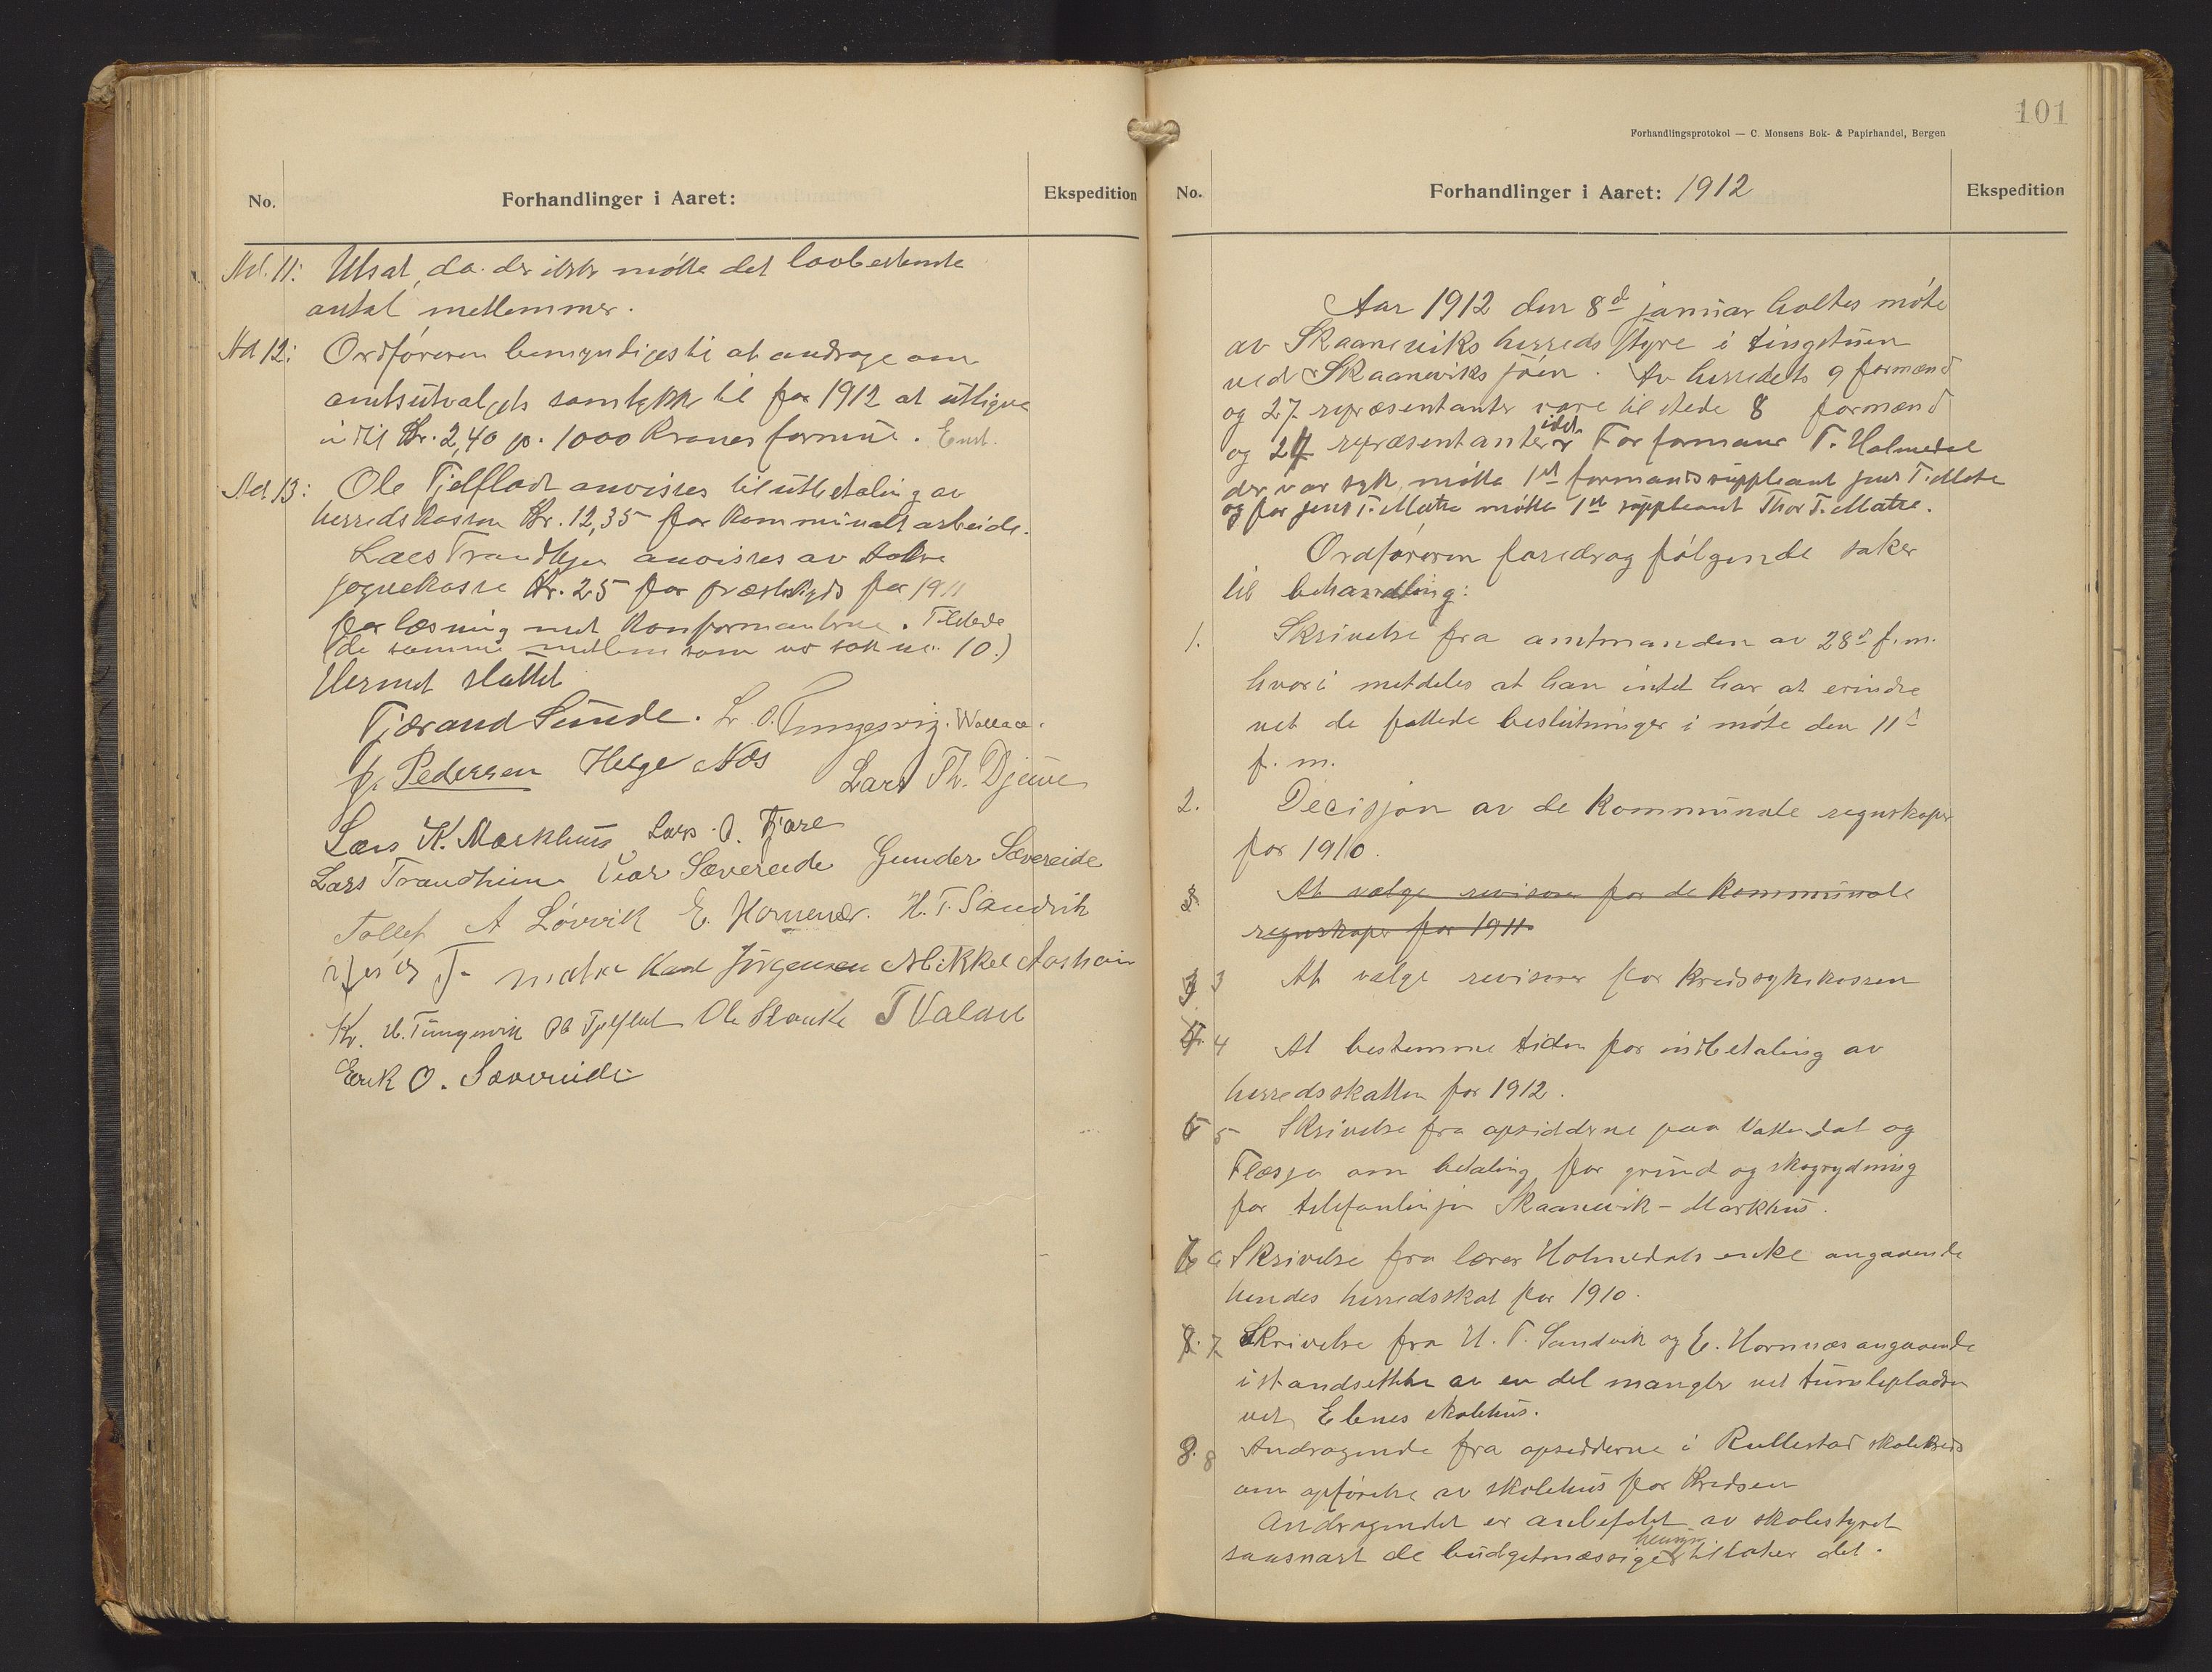 No.
Forhandlinger i Aaret:
Ekspedition
Ad. 11: Utsat, da der ikke møtte det lovbestemte
antal medlemmer.
Ad 12: Ordføreren bemyndiges til at andrage om
amtsutvalgets samtykke til for 1912 at utligne
indtil Kr. 2,40 pr. 1000 Kroners formue. Enst.
Ad. 13: Ole Fjelflaat anvises til utbetaling av
herredskassen Kr. 12,35 for kommunalt arbeide.
Lars Trandheim anvises av
sognekasse Kr. 25 for for 1911
for læsning med konfirmanterne. Tilstede
(de samme medlem som ved sak nr. 10.)
Hermed sluttet
Tjærand Sunde. L. O. Tungesvig. Wallace.
P. Pedersen Helge Næs Lars Th. Djuve
Lars K. Markhus Lars O. Fjære
Lars Trandheim Ivar Sævereide Gunder Sævereide
Tollef A Løvvik E. Hornenær. H. T. Sandvik
J. Matre Karl Jørgensen Mikkel Aasheim
Kr. H. Tungesvik Ole Fjelflaat Ole Skauke T Valdal
Erik O. Sævereide
101
Forhandlingsprotokol — C. Monsens Bok- & Papirhandel, Bergen
No.
Forhandlinger i Aaret: 1912
Ekspedition
Aar 1912 den 8d januar holtes møte
av Skaaneviks herredsstyre i tingstuen
ved Skaaneviksjøen. Av herredets 9 formænd
og 27 repræsentanter vare tilstede 8 formænd
og 24 repræsentanter idet For formand T. Holmedal
der var syk, møtte 1st formandssuppleant Jens T. Matre
og for Jens T. Matre møtte 1st suppleant Thor T. Matre.
Ordføreren foredrog følgende saker
til behandling:
1. Skrivelse fra amtmanden av 28d f.m.
hvori meddeles at han intet har at erindre
ved de fattede beslutninger i møte den 11d
f. m.
2. Decisjon av de kommunale regnskaper
for 1910.
3. At vælge revisorer for de kommunale
regnskaper for 1911.
3 At vælge revisorer for kredssykekassen
4 At bestemme tiden for indbetaling av
herredsskatten for 1912.
5 Skrivelse fra opsidderne paa Vattendal og
Flæsja om betaling for grund og skogrydning
for telefonlinjen Skaanevik - Markhus.
6 Skrivelse fra lærer Holmedals enke angaaende
hendes herredsskat for 1910.
8. 7 Skrivelse fra H. T. Sandvik og E. Hornnæs angaaende
istandsettelse av en del mangler ved tumlepladsen
ved Ebnes skolehus.
8. 8 Andragende fra opsidderne i Rullestad skolekreds
om opførelse av skolehus for kredsen
Andragendet er anbefalet av skolestyret
saasnart de budgetmæssige hensyn tillater det.